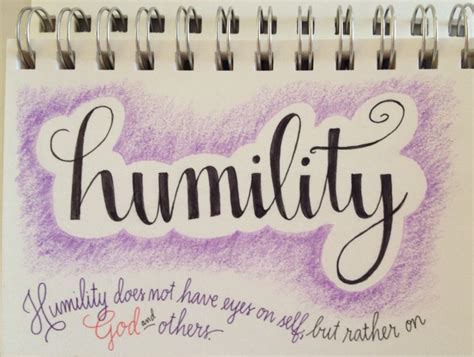 humility
Humility does not have eyes on self, but rather on
God and others.